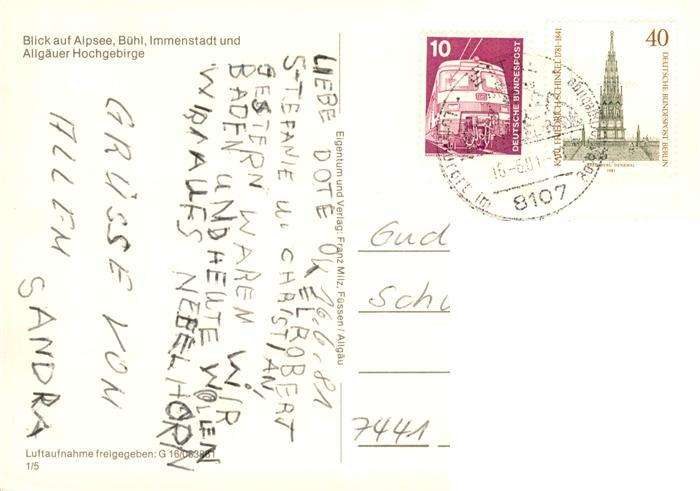 Blick auf Alpsee, Bühl, Immenstadt und
Allgäuer Hochgebirge
16.6.81
LIEBE DOTE OKELROBERT
STEFANIE U. CHRISTIAN,
GESTERN WAREN WIR
BADEN UND HEUTE WOLLEN
WIR AUFS NEBELHORN
GRÜSSE VON
ALLEN
SANDRA
Luftaufnahme freigegeben: G 16/
1/5
Eigentum und Verlag: Franz Milz, Füssen/Allgäu
10
DEUTSCHE BUNDESPOST
40
KARL FRIEDRICH SCHINKEL 1781-1841
DEUTSCHE BUNDESPOST BERLIN
8107
Gud
Sch
7441